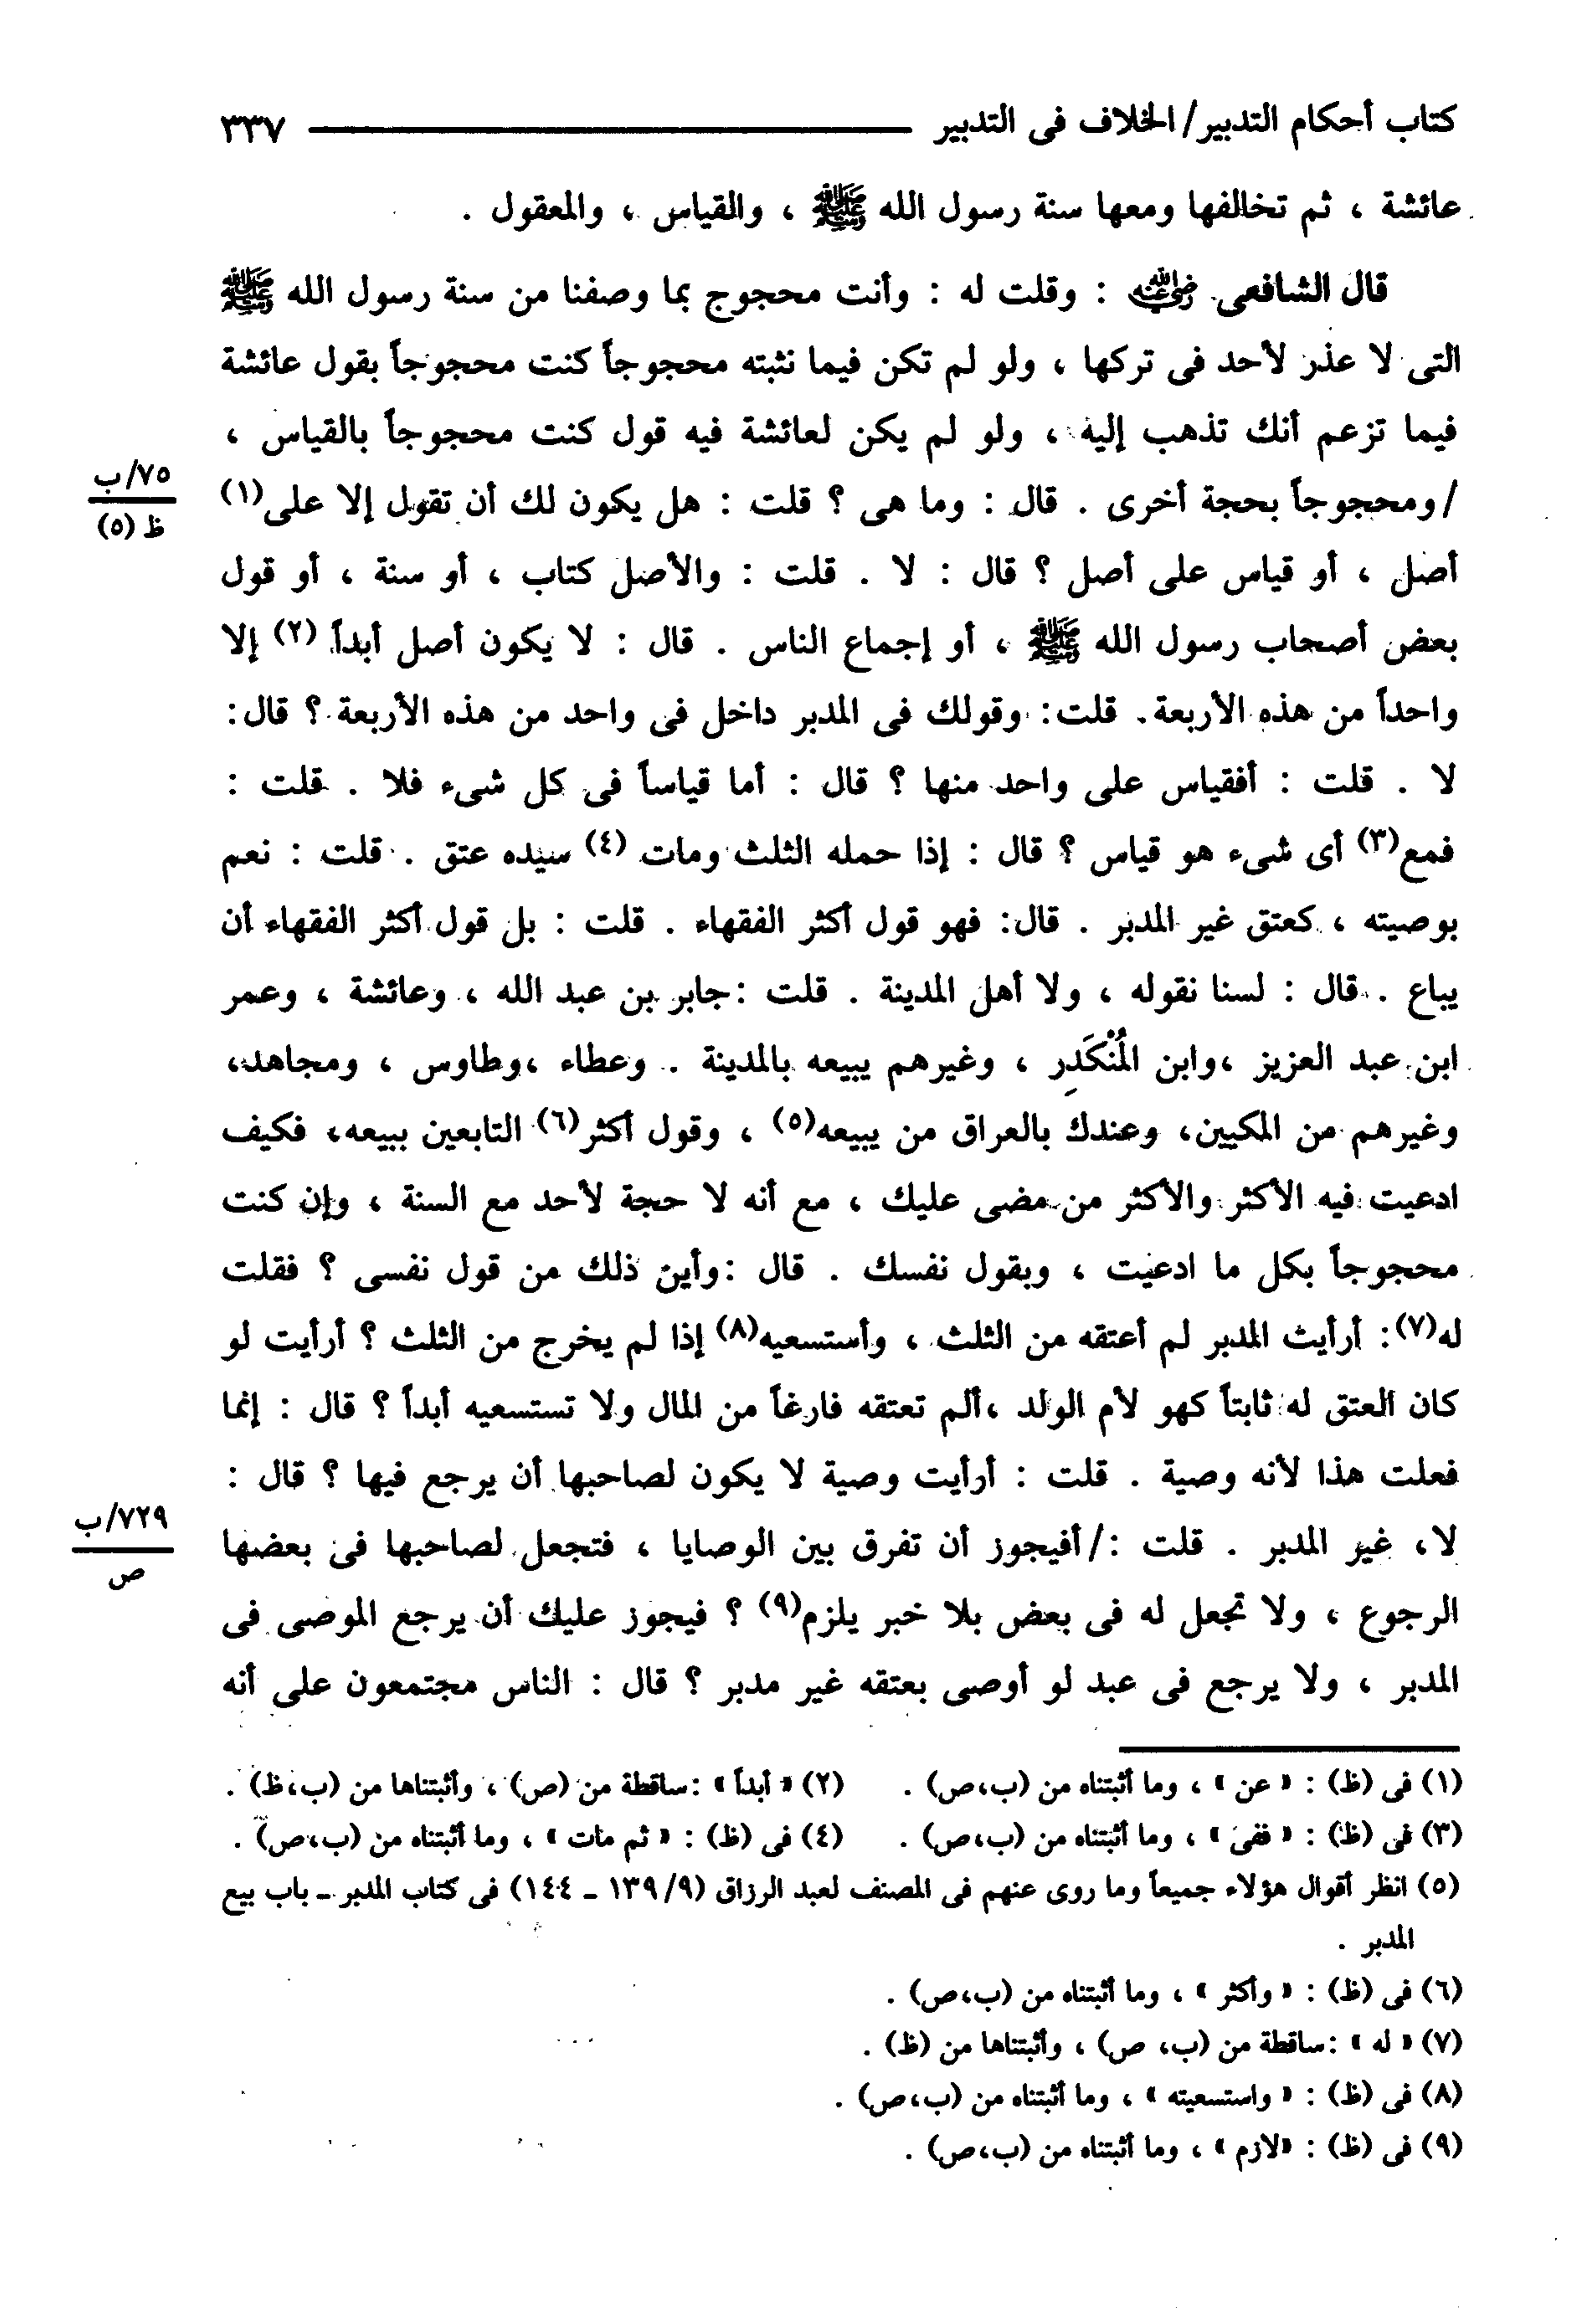 كتاب أحكام التدبير/ الخلاف فى التدبير ٣٣٧
عائشة ، ثم تخالفها ومعها سنة رسول الله ﷺ ، والقياس ، والمعقول .
قال الشافعى رضي الله عنه : وقلت له : وأنت محجوج بما وصفنا من سنة رسول الله ﷺ
التى لا عذر لأحد فى تركها ، ولو لم تكن فيما نثبته محجوجاً كنت محجوجاً بقول عائشة
فيما تزعم أنك تذهب إليه ، ولو لم يكن لعائشة فيه قول كنت محجوجاً بالقياس ،
٧٥/ب
ظ (٥)
/ ومحجوجاً بحجة أخرى . قال : وما هى ؟ قلت : هل يكون لك أن تقول إلا على(١)
أصل ، أو قياس على أصل ؟ قال : لا . قلت : والأصل كتاب ، أو سنة ، أو قول
بعض أصحاب رسول الله ﷺ ، أو إجماع الناس . قال : لا يكون أصل أبداً (٢) إلا
واحداً من هذه الأربعة . قلت : وقولك فى المدبر داخل فى واحد من هذه الأربعة ؟ قال :
لا . قلت : أفقياس على واحد منها ؟ قال : أما قياساً فى كل شىء فلا . قلت :
فمع(٣) أى شىء هو قياس ؟ قال : إذا حمله الثلث ومات (٤) سيده عتق . قلت : نعم
بوصيته ، كعتق غير المدبر . قال: فهو قول أكثر الفقهاء . قلت : بل قول أكثر الفقهاء أن
يباع . قال : لسنا نقوله ، ولا أهل المدينة . قلت :جابر بن عبد الله ، وعائشة ، وعمر
ابن عبد العزيز ،وابن المُنْكَدِر ، وغيرهم يبيعه بالمدينة . وعطاء ،وطاوس ، ومجاهد،
وغيرهم من المكيين، وعندك بالعراق من يبيعه(٥) ، وقول أكثر(٦) التابعين ببيعه، فكيف
ادعيت فيه الأكثر والأكثر من مضى عليك ، مع أنه لا حجة لأحد مع السنة ، وإن كنت
محجوجاً بكل ما ادعيت ، وبقول نفسك . قال :وأين ذلك من قول نفسى ؟ فقلت
له(٧): أرأيت المدبر لم أعتقه من الثلث ، وأستسعيه(٨) إذا لم يخرج من الثلث ؟ أرأيت لو
كان العتق له ثابتاً كهو لأم الولد ،ألم تعتقه فارغاً من المال ولا تستسعيه أبداً ؟ قال : إنما
فعلت هذا لأنه وصية . قلت : أرأيت وصية لا يكون لصاحبها أن يرجع فيها ؟ قال :
٧٢٩/ب
ص
لا، غير المدبر . قلت :/ أفيجوز أن تفرق بين الوصايا ، فتجعل لصاحبها فى بعضها
الرجوع ، ولا تجعل له فى بعض بلا خبر يلزم(٩) ؟ فيجوز عليك أن يرجع الموصى فى
المدبر ، ولا يرجع فى عبد لو أوصى بعتقه غير مدبر ؟ قال : الناس مجتمعون على أنه
(١) فى (ظ) : « عن » ، وما أثبتناه من (ب،ص) . (٢) « أبداً » :ساقطة من (ص) ، وأثبتناها من (ب،ظ) .
(٣) فى (ظ) : « ففى » ، وما أثبتناه من (ب،ص) . (٤) فى (ظ) : « ثم مات » ، وما أثبتناه من (ب،ص) .
(٥) انظر أقوال هؤلاء جميعاً وما روى عنهم فى المصنف لعبد الرزاق (٩/ ١٣٩ ـ ١٤٤) فى كتاب المدبر ـ باب بيع
المدبر .
(٦) فى (ظ) : « وأكثر » ، وما أثبتناه من (ب،ص) .
(٧) « له » :ساقطة من (ب، ص) ، وأثبتناها من (ظ) .
(٨) فى (ظ) : « واستسعيته » ، وما أثبتناه من (ب،ص) .
(٩) فى (ظ) : «لازم» ، وما أثبتناه من (ب،ص) .